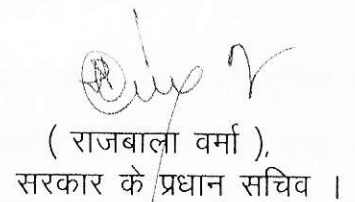 ( राजबाला वर्मा ),
सरकार के प्रधान सचिव ।